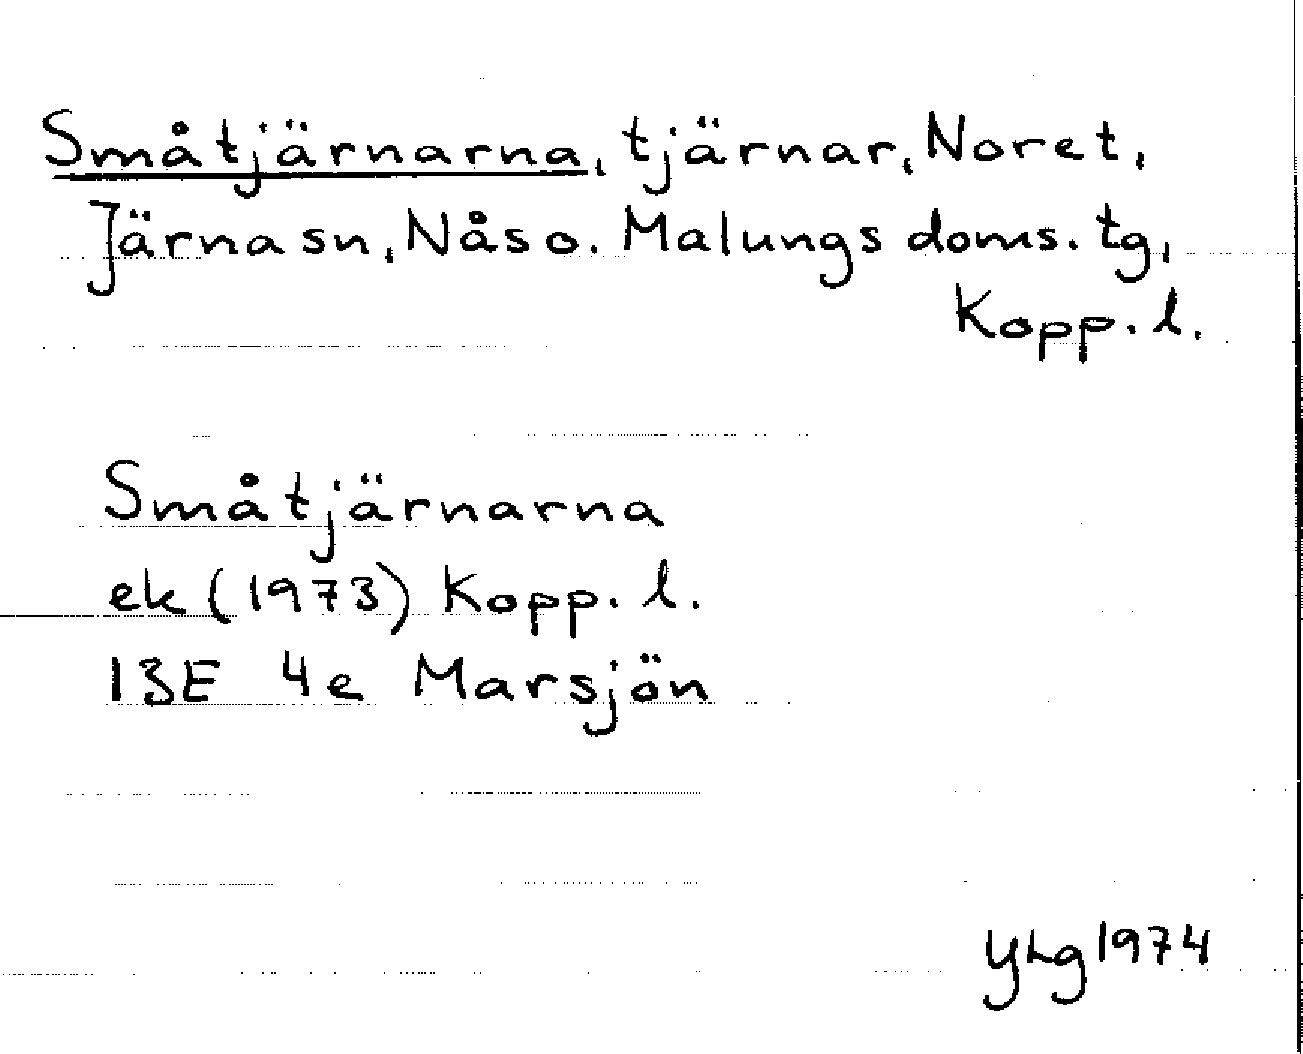 Småtjärnarna, tjärnar, Noret,
Järna sn, Nås o. Malungs doms. tg,
Kopp. l.
Småtjärnarna
ek (1973) Kopp. l.
13E 4e Marsjön
YLg 1974